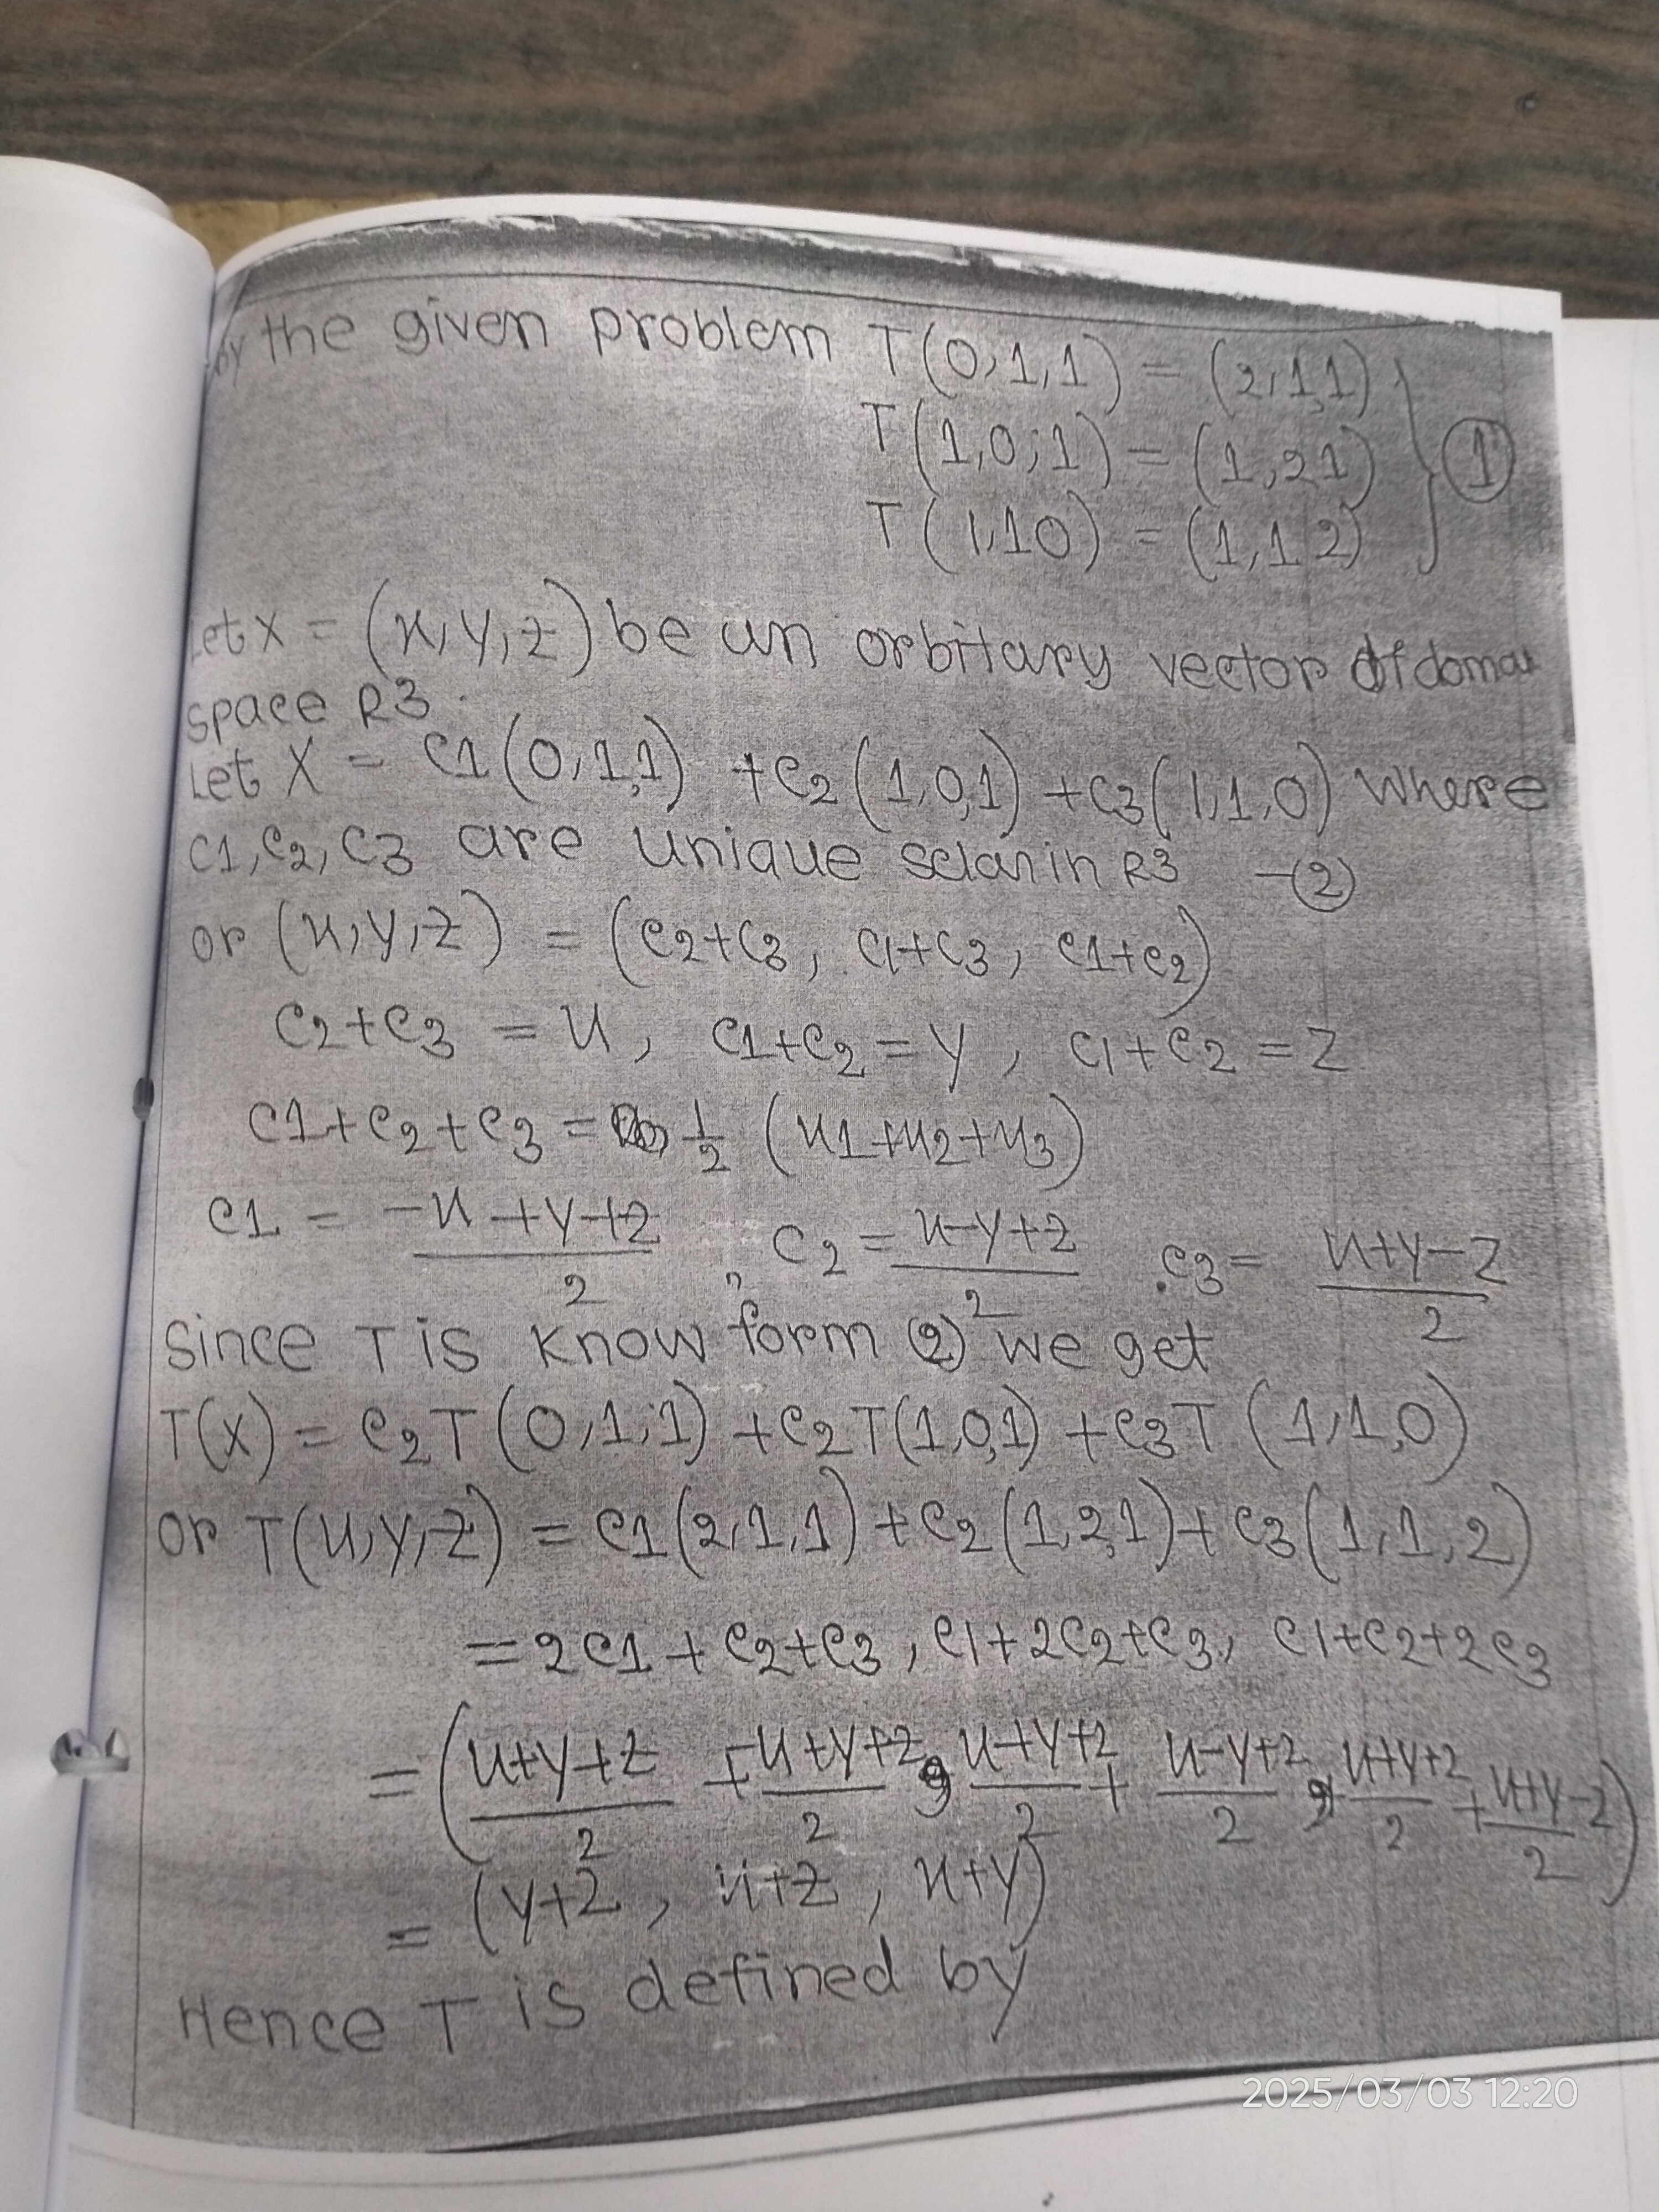 by the given problem T(0,1,1) = (2,1,1)
T(1,0,1) = (1,21)
T(1,10) = (1,12)
①
Let X = (x,y,z) be an orbitary vector of domai
space R3.
Let X = c1(0,1,1) +c2(1,0,1) +c3(1,1,0) where
c1,c2,c3 are unique sclar in R3 -②
or (x,y,z) = (c2+c3, c1+c3, c1+c2)
c2+c3 = x, c1+c2 = y, c1+c2 = z
c1+c2+c3 = 1/2 (x1+x2+x3)
c1 = -x+y+z/2, c2 = x-y+z/2 c3 = x+y-z/2
Since T is know form ② we get
T(X) = c2T(0,1,1) +c2T(1,0,1) +c3T (1,1,0)
or T(x,y,z) = c1(2,1,1)+c2(1,2,1)+c3(1,1,2)
= 2c1+c2+c3, c1+2c2+c3, c1+c2+2c3
= (x+y+z/2 + -x+y+z/2, x+y+z/2 + x-y+z/2, x+y+z/2 + x+y-z/2)
= (y+z, x+z, x+y)
Hence T is defined by
2025/03/03 12:20